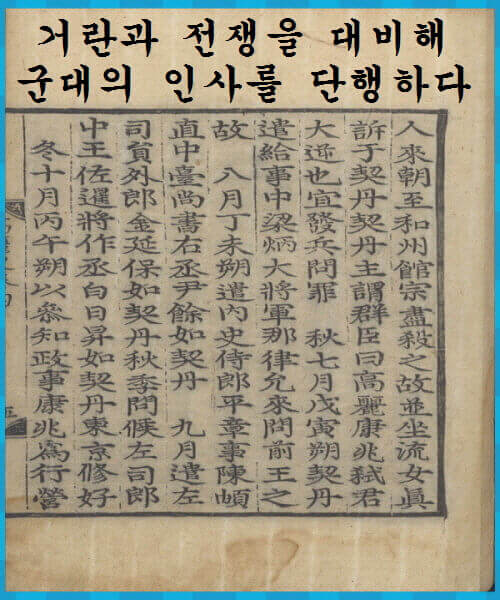 거란과 전쟁을 대비해
군대의 인사를 단행하다
人來朝至和州館宗盡殺之故並坐流女眞
訴于契丹契丹主謂群臣曰高麗康兆弑君
大逆也宜發兵問罪 秋七月戊寅朔契丹
遣給事中梁炳大將軍那律允來問前王之
故 八月丁未朔遣內史侍郎平章事陳頔
直中臺尙書右丞尹餘如契丹 九月遣左
司員外郎金延保如契丹秋季問候左司郎
中王佐暹將作丞白日昇如契丹東京修好
冬十月丙午朔以參知政事康兆爲行營